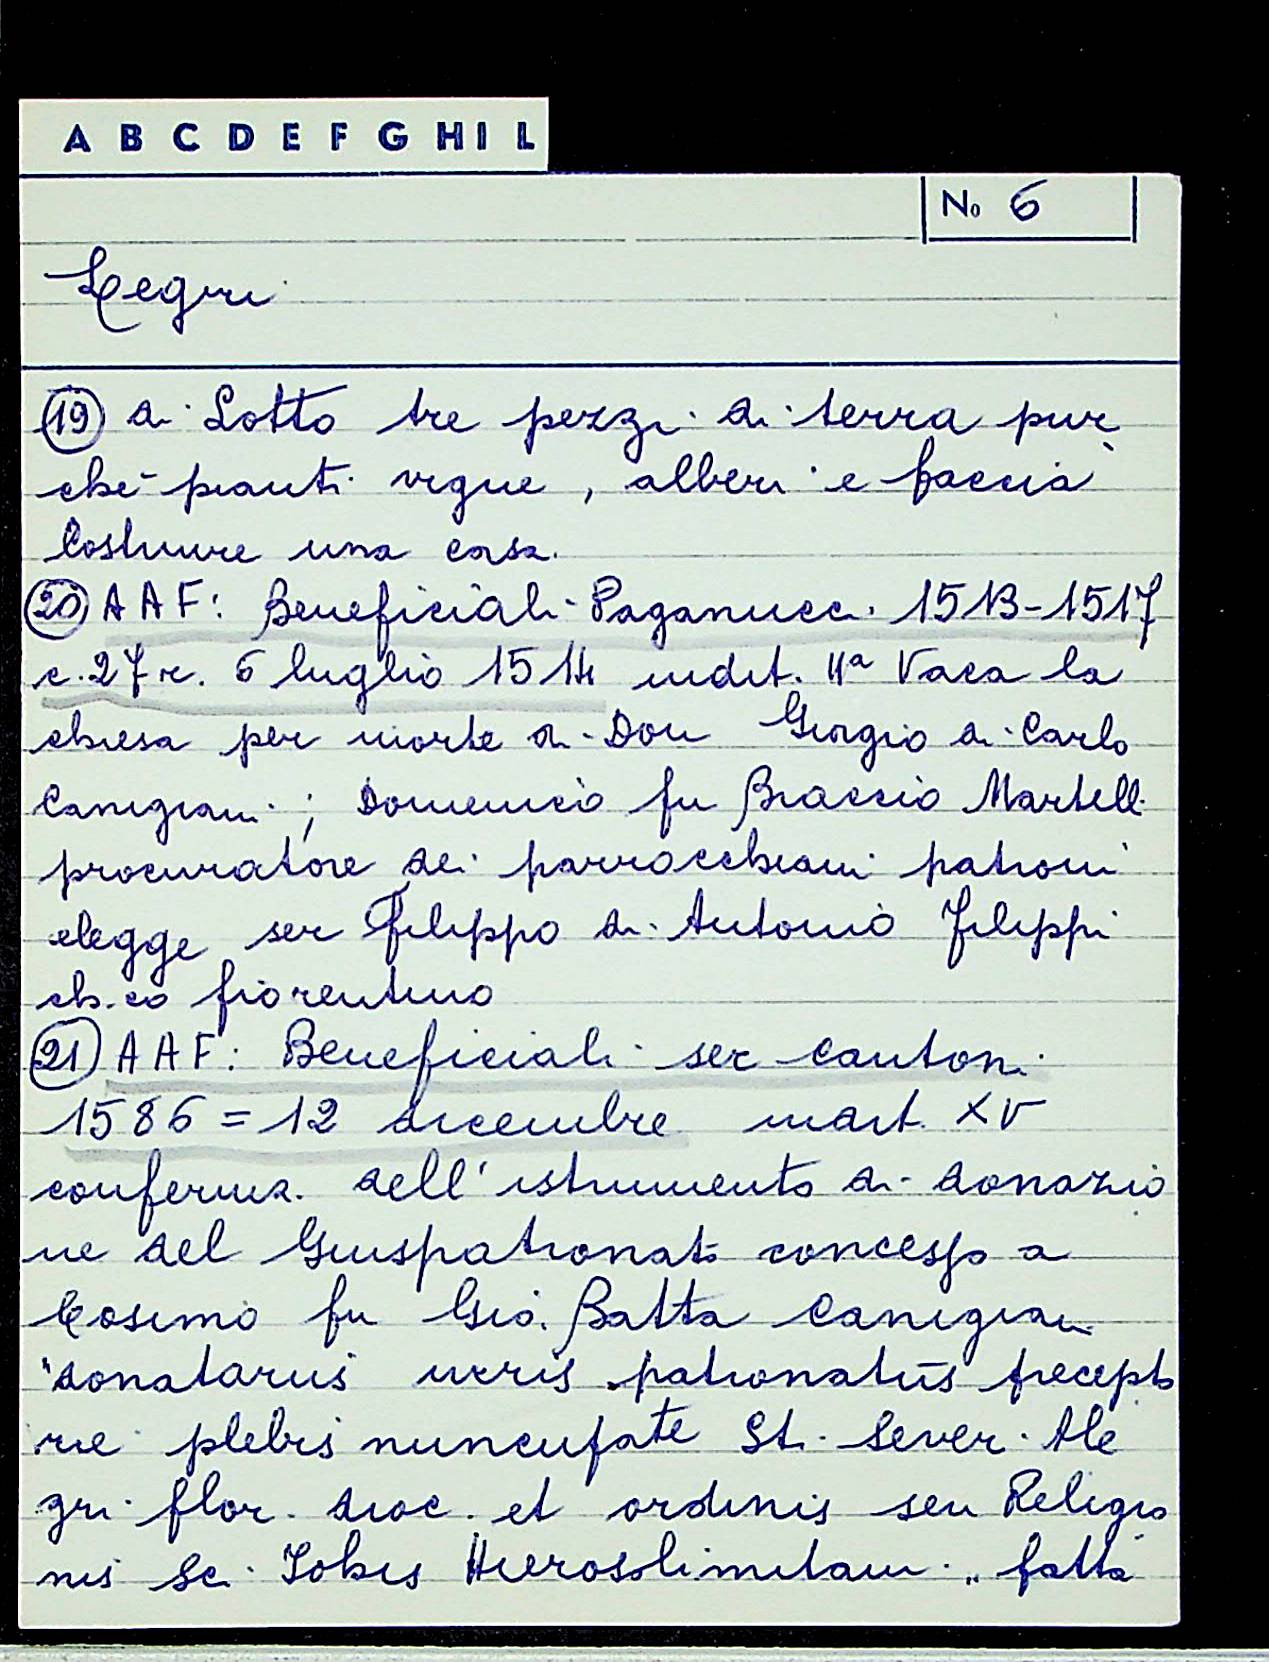 A B C D E F G H I L
No 6
Legri
(19) di Lotto tre pezzi di terra pur
ché pianti vigne, alberi e faccia
costruire una casa.
(20) AAF: Beneficiali Paganucci 1513-1517
c.27r. 6 luglio 1514 indit. IIª Vaca la
chiesa per morte di Don Giorgio di Carlo
Canigiani; Domenico fu Braccio Martelli
procuratore dei parrocchiani patroni
elegge ser Filippo di Antonio Filippi
ch.co fiorentino
(21) AAF: Beneficiali ser Cantoni
1586 = 12 dicembre XV
conferma dell'istrumento di donazio
ne del Giuspatronato concesso a
Cosimo fu Gio. Batta Canigiani
"donatarius iuris patronatus precepto
rie plebis nuncupate Sti. Severi Ale
gri flor. dioc. et ordinis seu Religio
nis Sci. Johis Hierosolimitani" fatta